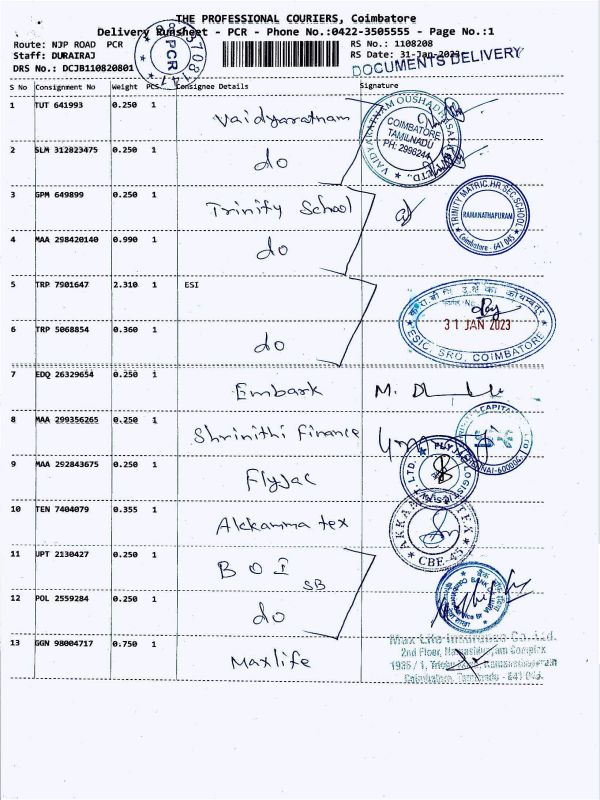 THE PROFESSIONAL COURIERS, Coimbatore
Delivery Runsheet - PCR - Phone No.:0422-3505555 - Page No.:1
Route: NJP ROAD PCR
RS No.: 1108208
Staff: DURAIRAJ
RS Date: 31-Jan-2023
DRS No.: DCJB110820801
PCR
DOCUMENTS DELIVERY
S No Consignment No Weight PCS Consignee Details Signature
1 TUT 641993 0.250 1 Vaidyaratnam
VAIDYARATNAM OUSHADHASALA
COIMBATORE
TAMILNADU
PH: 2996244
2 SLM 312823475 0.250 1 do
3 GPM 649899 0.250 1 Trinity School
TRINITY MATRIC.HR.SEC.SCHOOL
RAMANATHAPURAM
Coimbatore - 641 045
4 MAA 298420140 0.990 1 do
5 TRP 7901647 2.310 1 ESI
31 JAN 2023
ESIC, SRO, COIMBATORE
6 TRP 5068854 0.360 1 do
7 EDQ 26329654 0.250 1 Embark M.
8 MAA 299356265 0.250 1 Shrinithi Finance
9 MAA 292843675 0.250 1 Flyjac
10 TEN 7404079 0.355 1 Akkamma tex
AKKAMMA TEX
CBE-45
11 UPT 2130427 0.250 1 BOI SB
12 POL 2559284 0.250 1 do
13 GGN 98004717 0.750 1 Maxlife
Max Life Insurance Co.Ltd.
2nd Floor, Complex
1935 / 1, Trichy Road, Ramanathapuram
Coimbatore, Tamilnadu - 641 045.